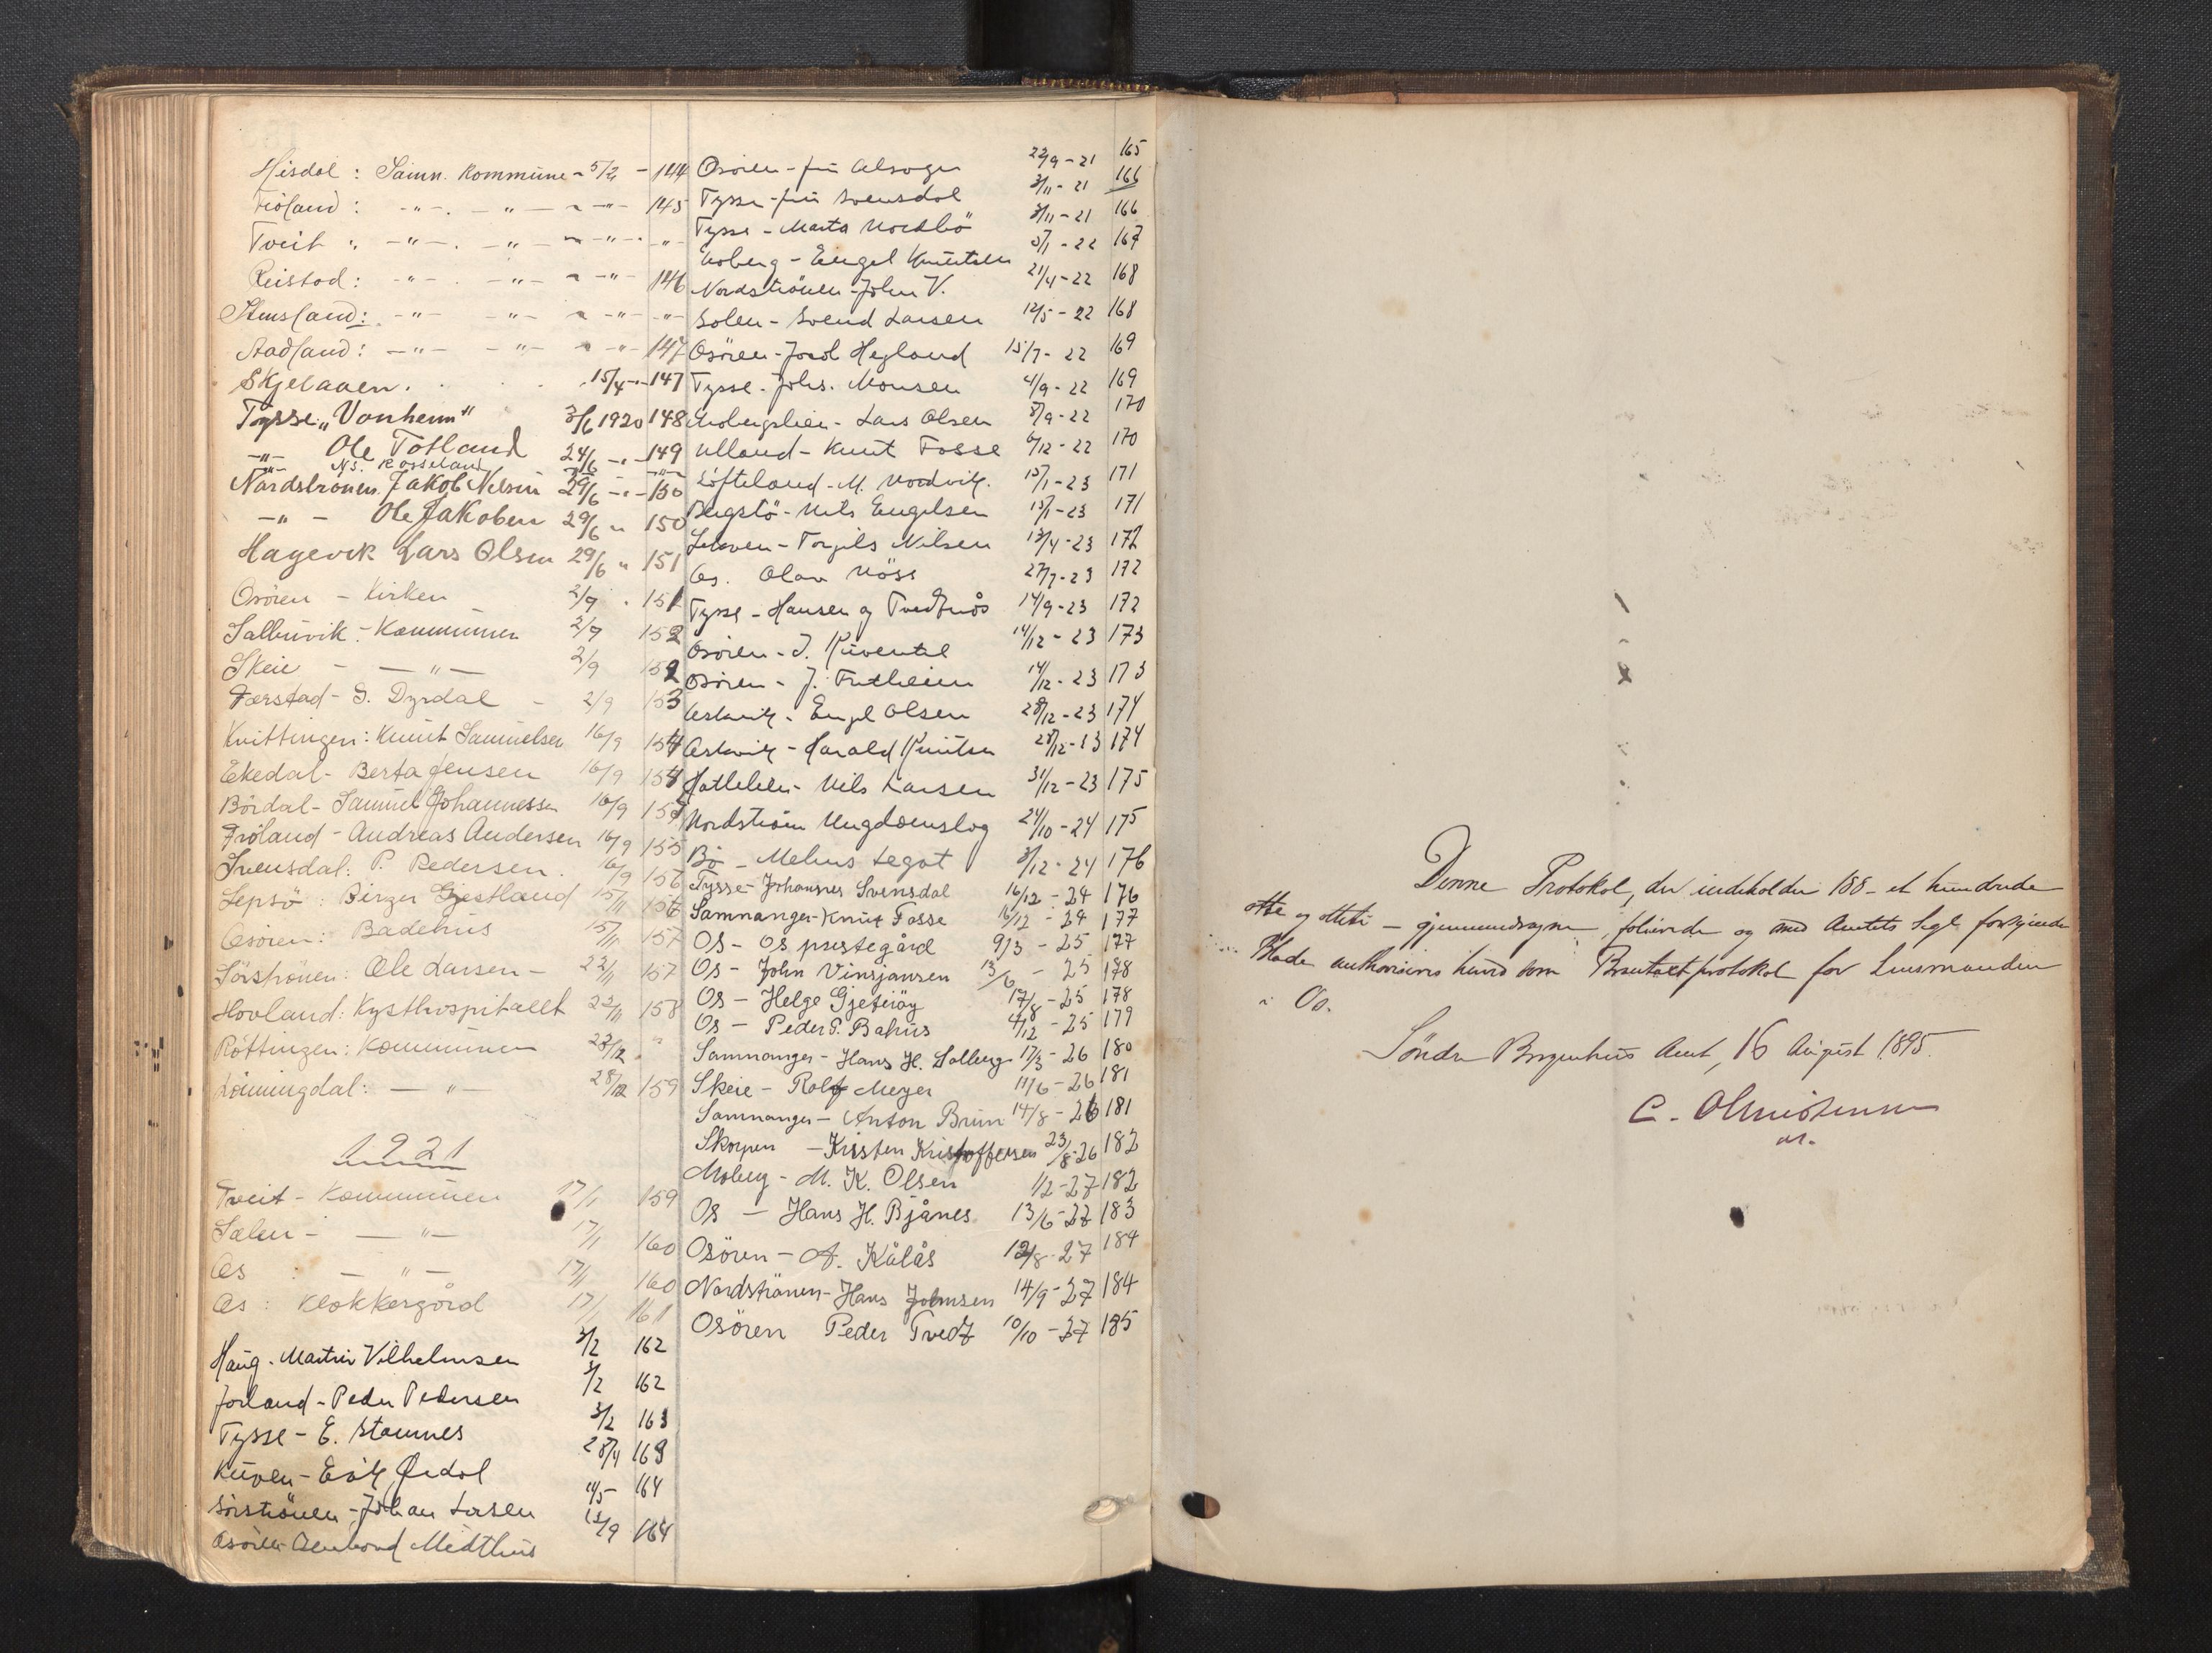 Hisdal : Samn. Kommune - 5/2 - 144
Fröland : -"- . - " - - " - 145
Tveit " -"- . - " - - " - . -"-
Reistad : -"- . -"- - " - 146
-"- -"- - " - -"-
Aadland : -"- -"- - " - 147
Skjelaaen . . . . 15/4 - " - 147
Tysse „Vonheim" 3/6 1920 148
-"- Ole Totland 24/6 - " - 149
-"- N.S. Rosseland -"-
Nordstrønen Jakob Nilsen 29/6 - " - 150
-"- Ole Jakobsen 29/6 " 150
Hagevik Lars Olsen 29/6 " 151
Osören - Kirken 2/9 . 151
Salbuvik - Kommunen 2/9 152
Skeie - - " - 2/9 152
Færstad - S. Dyrdal - 2/9 153
Kvittingen : Knut Samuelsen 16/9 154
Ekedal - Berta Jensen 16/9 154
Bördal - Samuel Johannessen 16/9
Fröland - Andreas Andersen 16/9 155
Svensdal : P. Pedersen . 16/9 156
Lepsö : Birger Gjestland 15/11 156
Osören : Badehus 15/11 157
Sörströnen : Ole Larsen - 22/11 157
Hovland : Kysthospitalet 22/11 158
Röttingen : Kommunen 28/12 "
Lönningdal : - " - 28/12 159
1921
Tveit - Kommunen 17/1 159
Sælen - - " - 17/1 160
Os : - " - 17/1 160
Os : Klokkergård 17/1 161
Haug - Martin Vilhelmsen 3/2 162
Jorland - Peder Pedersen 3/2 162
Tysse - E. Stamnes 3/2 163
Kuven - Erik Ødol 28/4 163
Sörströnen - Johan Larsen 164
Osören Midthus 164
Osören - fru 22/9 - 21 165
Tysse - fru Svensdal 3/11 - 21 166
Tysse - Marta Nordbö 3/11 - 21 166
Moberg - Engel Knutsen 5/1 - 22 167
Nordströnen - John V. 21/4 - 22 168
Solen - Svend Larsen 12/5 - 22 168
Osören - Jacob Hegland 15/7 - 22 169
Tysse - Johs. Monsen 4/9 - 22 169
Mobergslien - Lars Olsen 8/9 - 22 170
Ulland - Knut Fosse 6/12 - 22 170
Löfteland - M. Nordvik. 15/1 - 23 171
Bergstö - Nils Engelsen 15/1 - 23 171
Lekven - Torgils Nilsen 13/4 - 23 172
Os. Olav Möss 27/7 - 23 172
Tysse - Hansen og Tvedtnæs 14/9 - 23 172
Osören - J. Kuventræ 14/12 - 23 173
Osören - J. Tuthein 14/12 - 23 173
Askvik - Engel Olsen 28/12 - 23 174
Askvik - Harald Knutsen 28/12 - 23 174
Hatlelien - Nils Larsen 31/12 - 23 175
Nordströn Ungdomslag 24/10 - 24 175
Bö - Mehus Legat 3/12 - 24 176
Tysse - Johannes Svensdal 16/12 - 24 176
Samnanger - Knut Fosse 16/12 - 24 177
Os - Os prestegård 9/3 - 25 177
Os - John Vinsjansen 13/6 - 25 178
Os - Helge Gjeteröy 17/8 - 25 178
Os - Peder P. Bahus 4/12 - 25 179
Samnanger - Hans H. Solberg 17/3 - 26 180
Skeie - Rolf Meyer 11/6 - 26 181
Samnanger - Anton Brun 14/8 - 26 181
Skorpen - Kristen Kristoffersen 23/8 - 26 182
Moberg - M. K. Olsen 1/2 - 27 182
Os - Hans H. Bjånes 13/6 - 27 183
Osören - A. Kålås 12/8 - 27 184
Nordströnen - Hans Johnsen 14/9 - 27 184
Osören Peder Tvedt 10/10 - 27 185
Denne Protokol, der indeholder 188 - et hundrede
otte og otteti - gjennemdragne, folierede og med Amtets Segl forsynede
Blade authoriseres herved som Brandtaxtprotokol for Lensmanden
i Os.
Söndre Bergenhus Amt, 16 August 1895.
C. Christensen